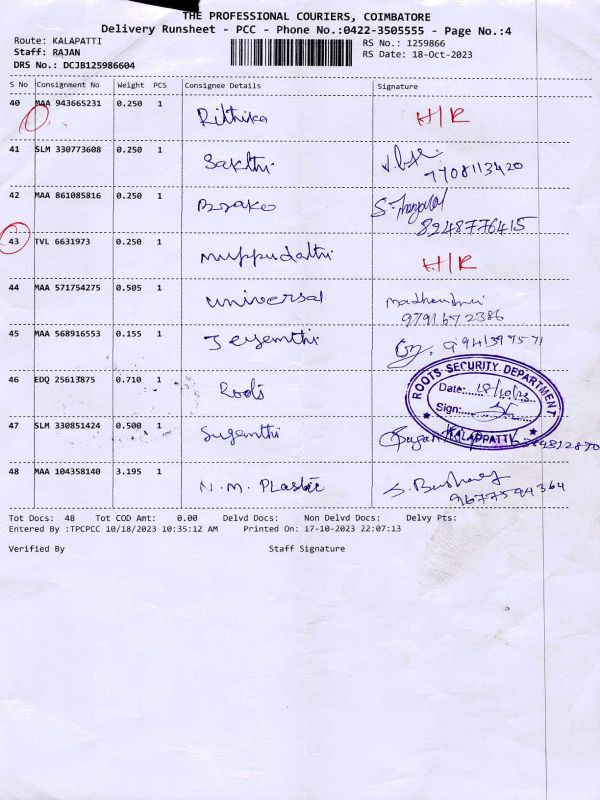 THE PROFESSIONAL COURIERS, COIMBATORE
Delivery Runsheet - PCC - Phone No.:0422-3505555 - Page No.:4
Route: KALAPATTI
RS No.: 1259866
Staff: RAJAN
RS Date: 18-Oct-2023
DRS No.: DCJB125986604
S No Consignment No Weight PCS Consignee Details Signature
40 MAA 943665231 0.250 1 Rithika H/R
41 SLM 330773608 0.250 1 Sakthi 7708113420
42 MAA 861085816 0.250 1 8248776415
43 TVL 6631973 0.250 1 muppudathi H/R
44 MAA 571754275 0.505 1 universal 9791672386
45 MAA 568916553 0.155 1 Jeyamthi
46 EDQ 25613875 0.710 1 Roots
ROOTS SECURITY DEPARTMENT
Date: 18/10/23
Sign:
KALAPPATTI
47 SLM 330851424 0.500 1 Sugamthi
48 MAA 104358140 3.195 1 N.M. Plastic 9677594364
Tot Docs: 48 Tot COD Amt: 0.00 Delvd Docs: Non Delvd Docs: Delvy Pts:
Entered By :TPCPCC 10/18/2023 10:35:12 AM Printed On: 17-10-2023 22:07:13
Verified By Staff Signature